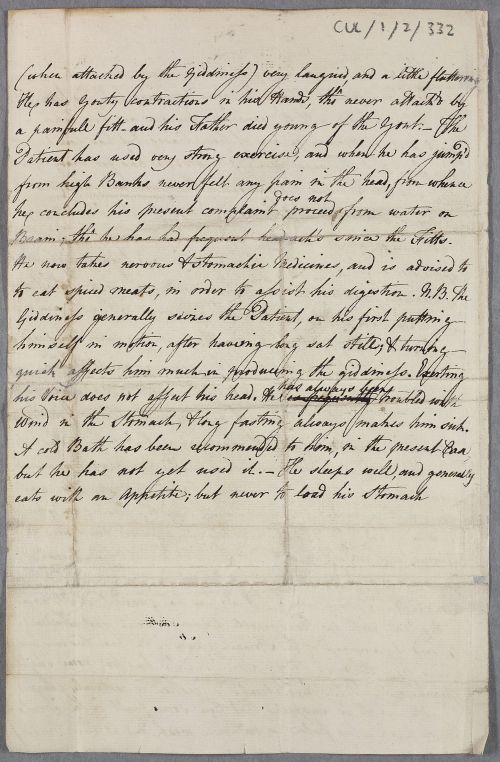 CUL/1/2/332
(when attacked by the Giddiness) very languid, and a little fluttering
He has Gouty contractions in his Hands, tho' never attack'd by
a painfull fitt and his Father died young of the Gout:- (The
Patient has used very strong exercise, and when he has jump'd
from high Banks never felt any pain in the head, from whence
he concludes his present complaint does not proceed from water on
Brain, tho' he has had frequent headach's since the Fitts.
He now takes nervous & stomachic Medicines, and is advised to
to eat spiced meats, in order to assist his digestion. N.B. The
Giddiness generally seizes the Patient, on his first putting
himself in motion, after having long sat still, & turning
quick affects him much in producing the giddiness. Exerting
his Voice does not affect his head. He has always been troubled with
Wind in the Stomach, & long fasting always makes him sick.
A cold Bath has been recommended to him, in the present Case
but he has not yet used it. - He sleeps well, and generally
eats with an appetite; but never to load his Stomach